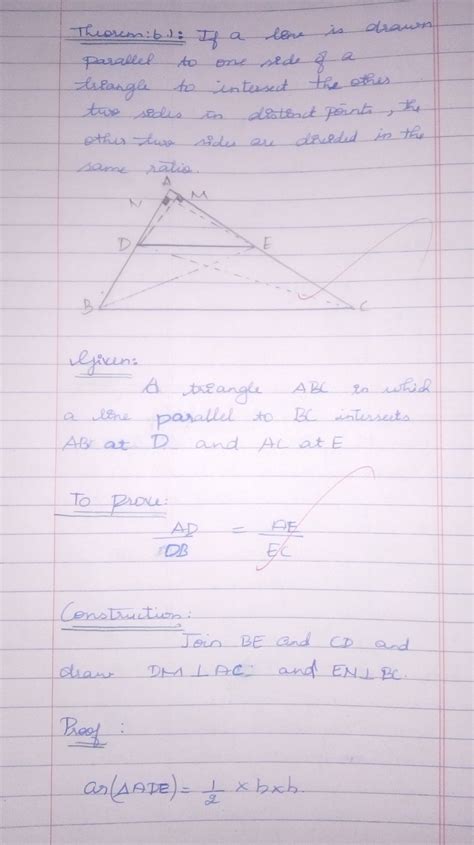 Theorem: 6.1: If a line is drawn
parallel to one side of a
triangle to intersect the other
two sides in distinct points, the
other two sides are divided in the
same ratio.
A
N M
D E
B C
Given:
A triangle ABC in which
a line parallel to BC intersects
AB at D and AC at E
To prove:
AD = AE
DB EC
Construction:
Join BE and CD and
draw DM ⊥ AC and EN ⊥ BC.
Proof :
ar(ΔADE) = 1/2 × b × h